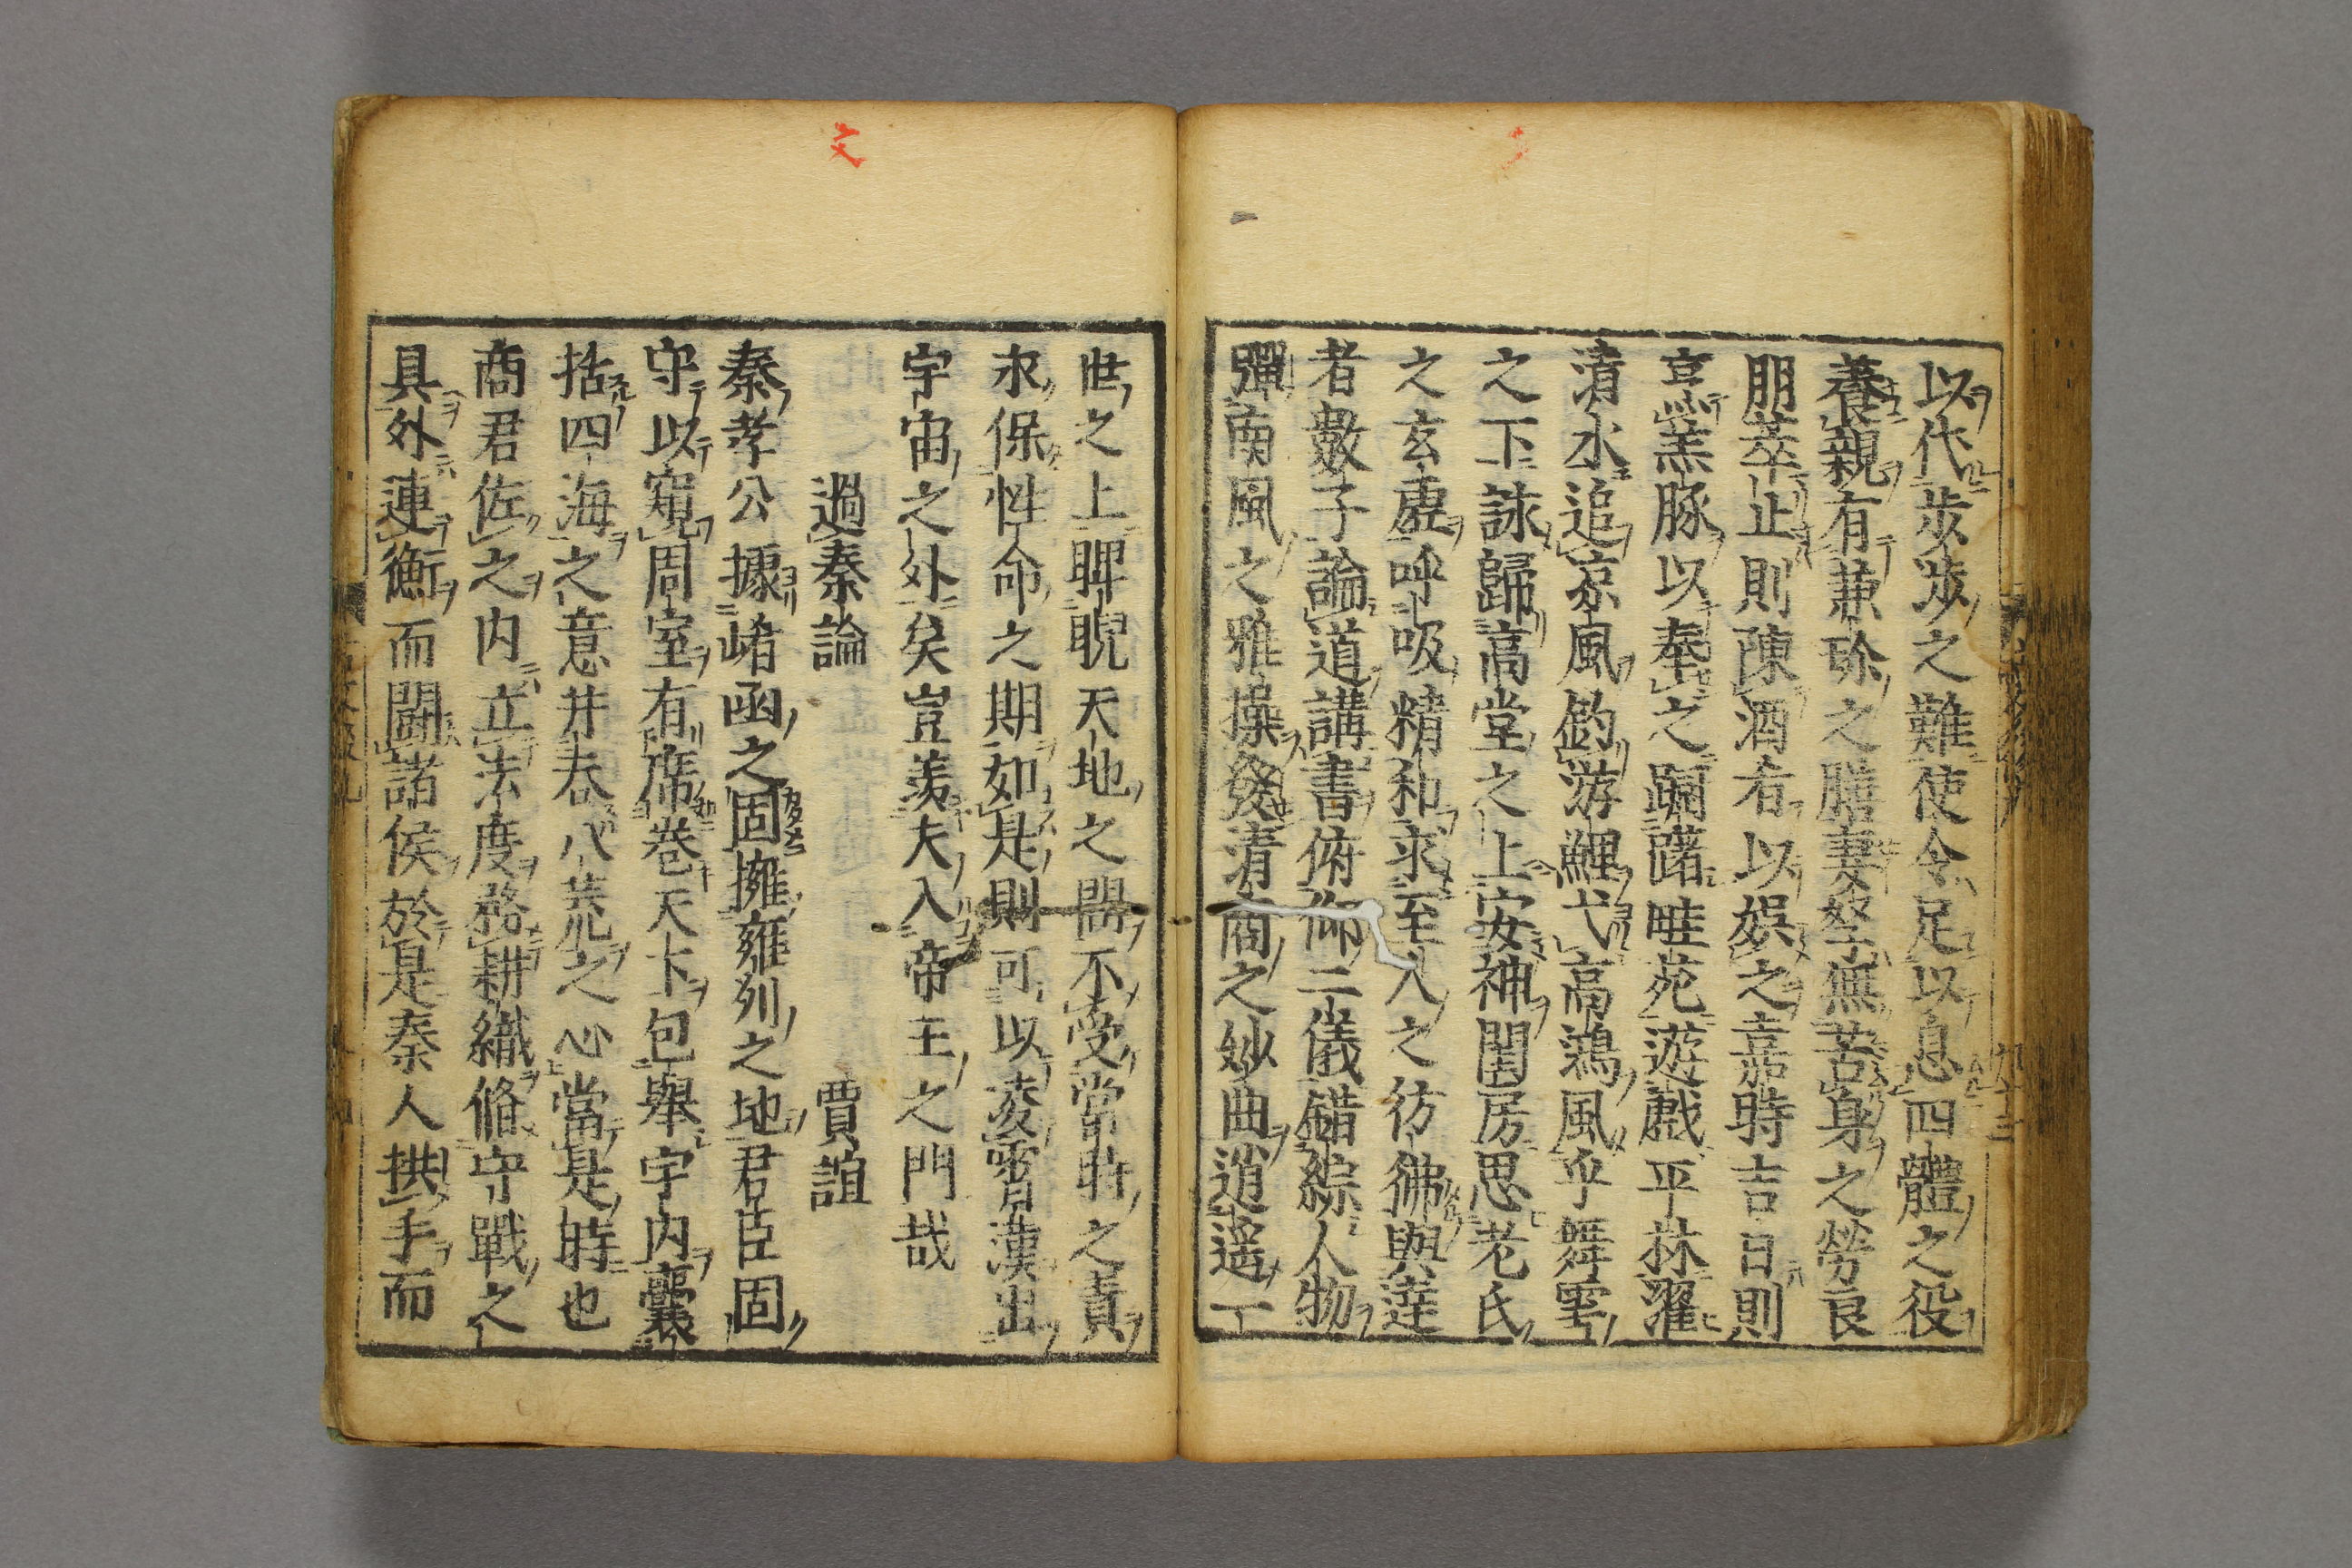 以代步涉之難使令足以息四體之役
養親有兼珎之膳妻孥無苦身之勞良
朋萃止則陳酒肴以娯之嘉時吉日則
烹羔豚以奉之躕躇畦苑遊戯平林濯
清水追凉風釣游鯉弋高鴻風乎舞雩
之下詠歸高堂之上安神閨房思老氏
之玄虚呼吸精和求至人之彷彿與達
者數子論道講書俯仰二儀錯綜人物
彈南風之雅操發清商之妙曲逍遥一
世之上睥睨天地之間不受當時之責
永保性命之期如是則可以凌霄漢出
宇宙之外矣豈羨夫入帝王之門哉
過秦論 賈誼
秦孝公據崤函之固擁雍州之地君臣固
守以窺周室有席巻天下包舉宇内囊
括四海之意并吞八荒之心當是時也
商君佐之内立法度務耕織脩守戰之
具外連衡而闘諸侯於是秦人拱手而
文